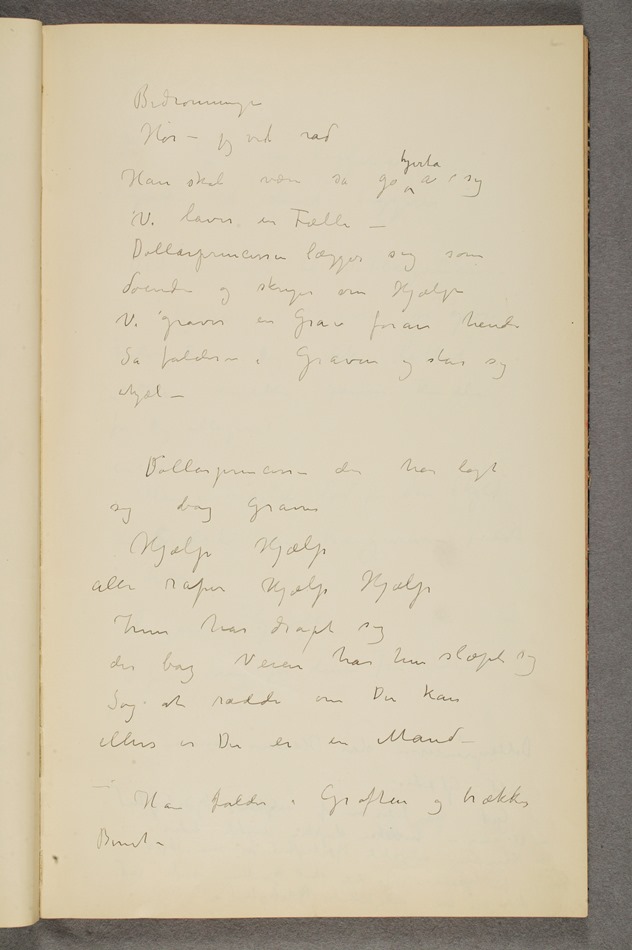 Bedronningen
Hør – jeg ved råd
Han skal være så go hjerta af sig
Vi laver en Fælle –
Dollarprincessen lægger sig som
døende og skriger om Hjælp
Vi graver en Grav foran hende
Så falder i Graven og slår sig
ihjæl –
Dollarprincessen der har lagt
sig bag Graven
Hjælp Hjælp
alle råper Hjælp Hjælp
Hun har dræpt sig
der bag Veien har hun slæpt sig
Søg at rædde om Du kan
ellers er Du ei en Mand –
Han falder i Grøften og brækker
Benet –